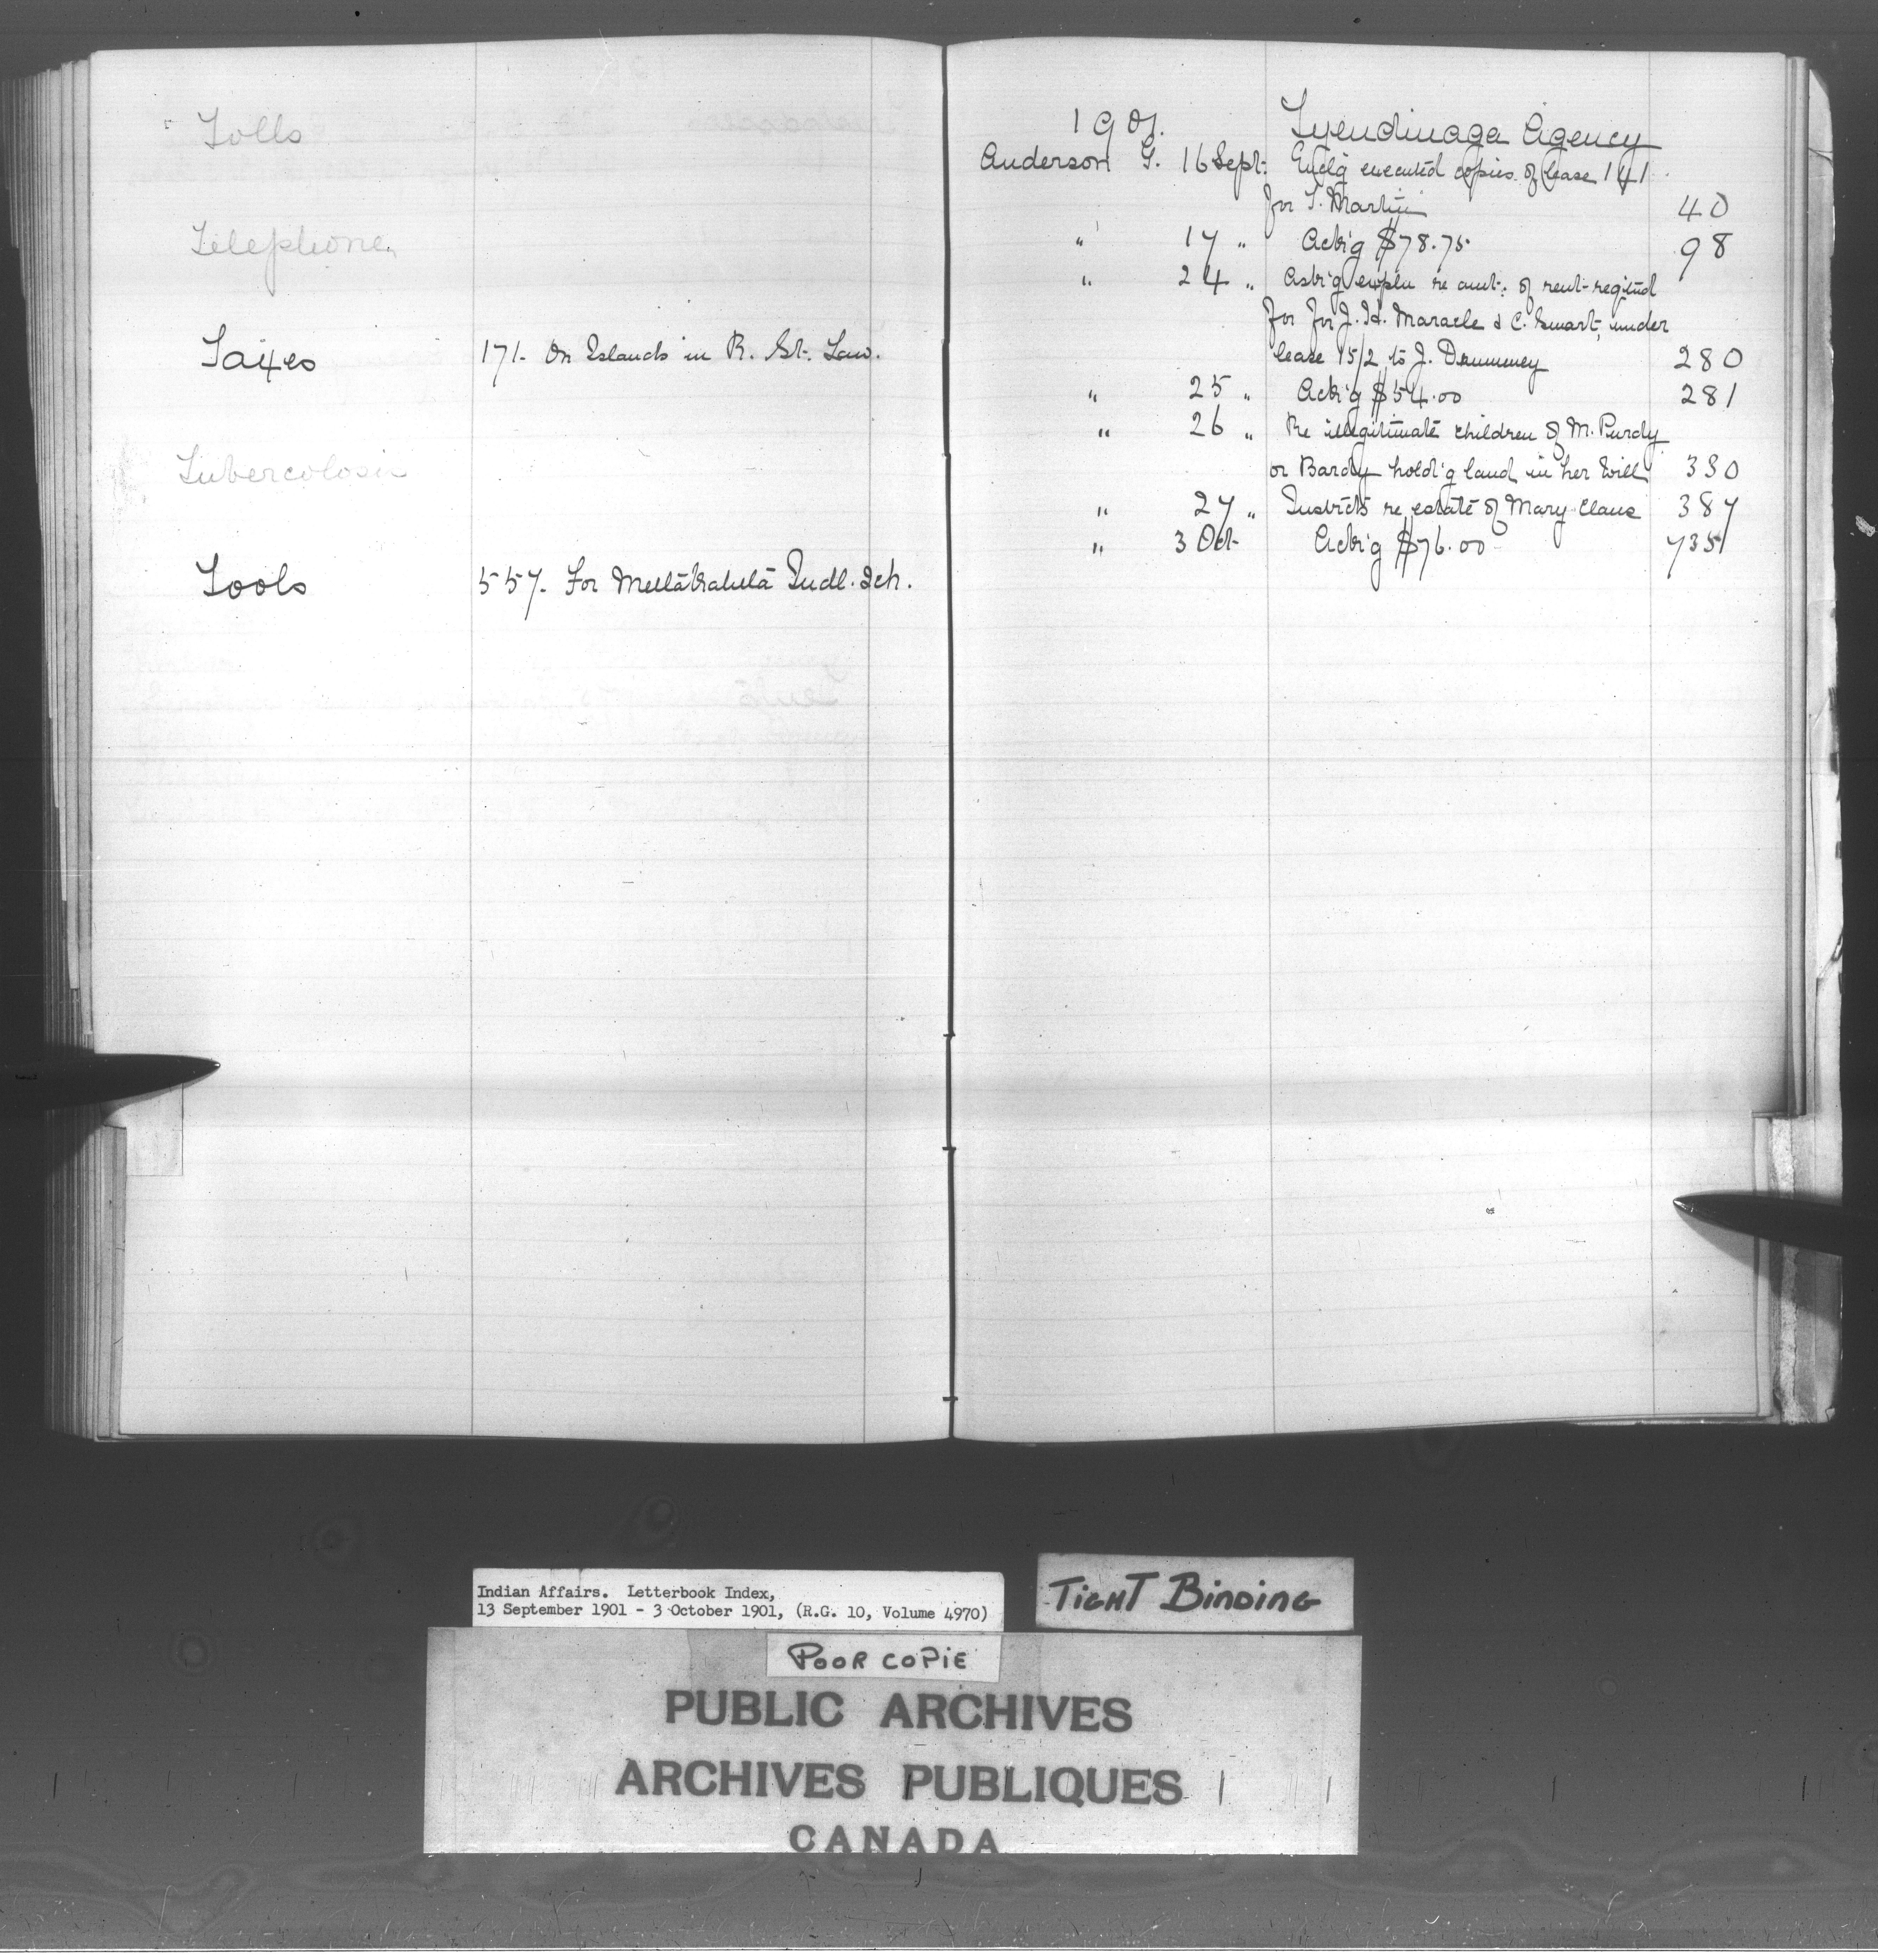 Tolls
Telephone
Taxes 171. On Islands in R. St. Law.
Tubercolosis
Tools 557. For Metlakahtla Indl. Sch.
1901. Tyendinaga Agency
Anderson G. 16 Sept. Encl'g executed copies of lease 141
for T. Martin 40
" 17 " Ack'g $78.75 98
" 24 " Ask'g expln re amt. of rent reqited
for for J. H. Maracle & C. Smart, under
lease 15/2 to J. Drummey 280
" 25 " Ack'g $54.00 281
" 26 " Re illegitimate children of M. Purdy
or Bardy hold'g land in her Will 330
" 27 " Instrcts re estate of Mary Claus 387
" 3 Oct Ack'g $76.00 735
Indian Affairs. Letterbook Index,
13 September 1901 - 3 October 1901, (R.G. 10, Volume 4970)
TIGHT BINDING
POOR COPIE
PUBLIC ARCHIVES
ARCHIVES PUBLIQUES
CANADA